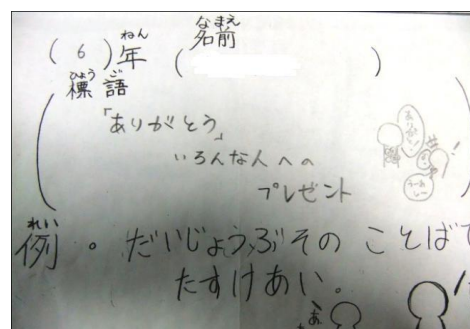 (6)年 名前( )
ねん なまえ
標語
ひょう ご
「ありがとう」
いろんな人への
プレゼント
例。だいじょうぶそのことばで
れい
たすけあい。